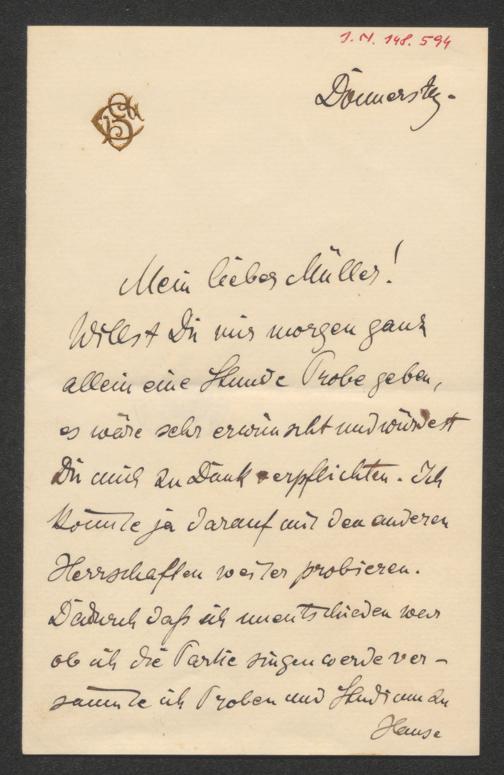 J. N. 148.594
Donnerstg.
Mein lieber Müller!
Willst Du mir morgen ganz
allein eine Stunde Probe geben,
es wäre sehr erwünscht und würdest
Du mich zu Dank verpflichten. Ich
könnte ja darauf mit den anderen
Herrschaften weiter probieren.
Dadurch daß ich unentschieden war
ob ich die Partie singen werde ver-
säumte ich Proben und Studium zu
Hause